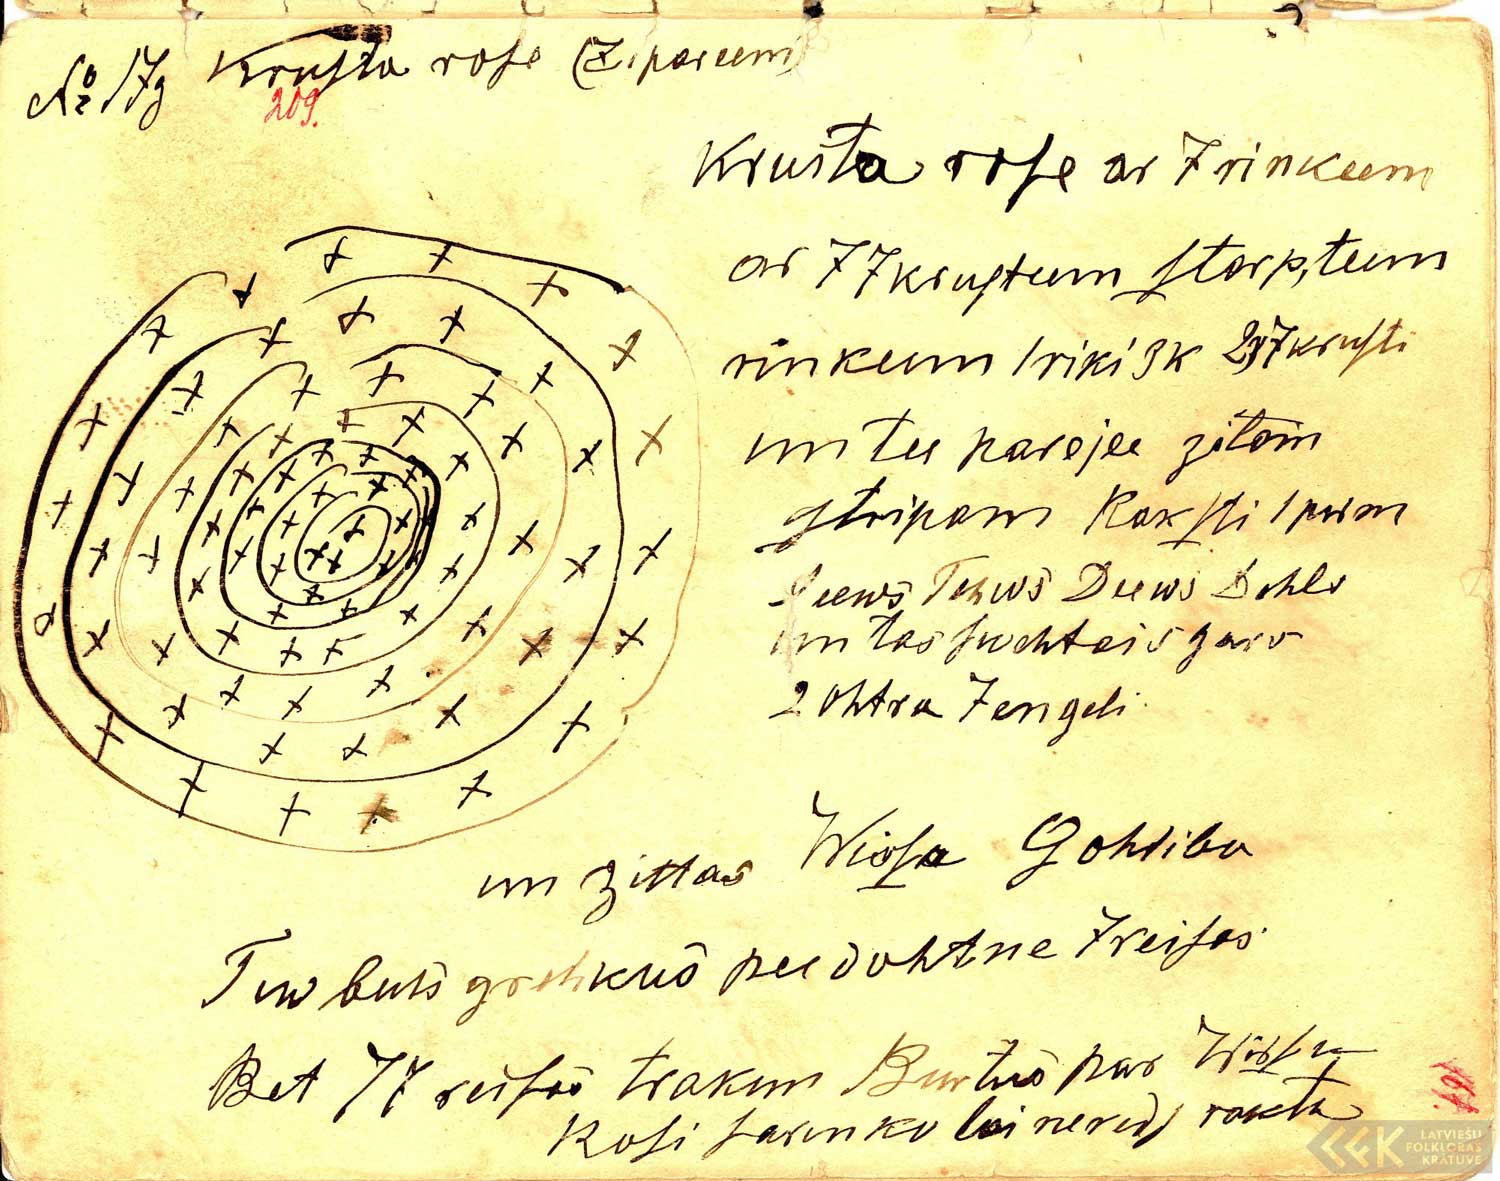 No 17g Krusta rose (Zipareem)
209.
Krusta rose ar 7 rinkeem
ar 77 krusteem starp, teem
rinkeem 1 riki 3k 2, 7 krusti
un tee parejee zitām
stripam Raksti 1 pirm
Deews Tehws Deews Dehls
un tas swehtais gars
2 ohtra 7 engeli
un zittas Wissa Gohdiba
Tew buhs grehkus peedohtne 7 reises.
Bet 77 reises trakum Burtus par Wissu
Rosi sarinko lai nered, raksta
LATVIEŠU
FOLKLORAS
KRĀTUVE